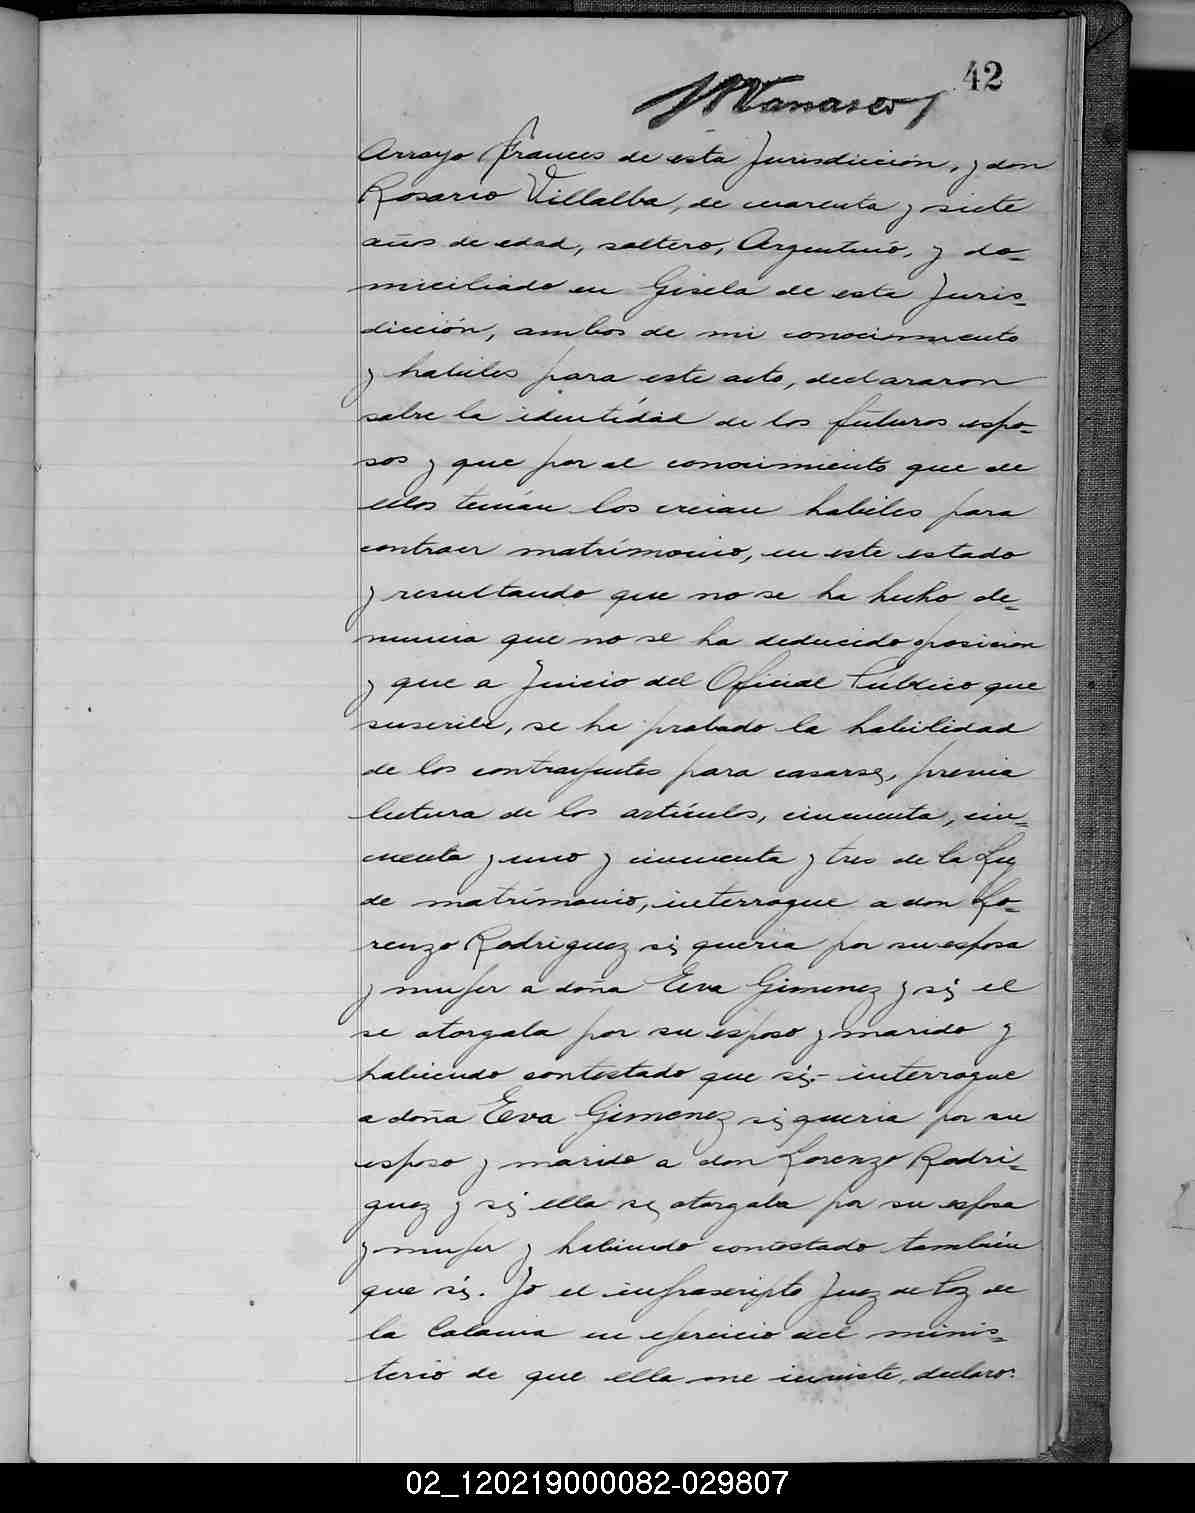 42
Arroyo Frances de esta Jurisdicción, y don
Rosario Villalba, de cuarenta y siete
años de edad, soltero, Argentino, y do-
miciliado en Gisela de esta Juris-
dicción, ambos de mi conocimiento
y habiles para este acto, declararon
sobre la identidad de los futuros espo-
sos y que por el conocimiento que de
ellos tenían los creian habiles para
contraer matrimonio, en este estado
y resultando que no se ha hecho de-
nuncia que no se ha deducido oposicion
y que a Juicio del Oficial Público que
suscribe, se ha probado la habilidad
de los contrayentes para casarse, previa
lectura de los artículos, cincuenta, cin-
cuenta y uno y cincuenta y tres de la Ley
de matrimonio, interrogue a don Lo-
renzo Rodriguez si queria por su esposa
y mujer a doña Eva Gimenez y si el
se otorgaba por su esposo y marido y
habiendo contestado que si;- interrogue
a doña Eva Gimenez si queria por su
esposo y marido a don Lorenzo Rodri-
guez y si ella se otorgaba por su esposa
y mujer y habiendo contestado también
que si. Yo el infrascripto Juez de Paz de
la Colonia en ejercicio del minis-
terio de que ella me inviste, declaro:
02_120219000082-029807